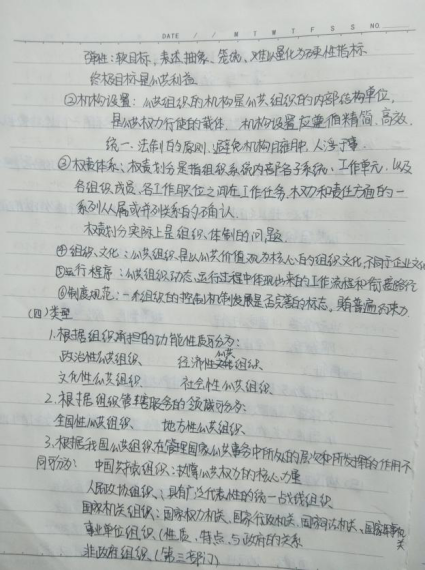 DATE / / M T W T F S S NO.
弹性：软目标，表述抽象、笼统、难以量化为硬性指标
终极目标是公共利益
②机构设置：公共组织的机构是公共组织的内部结构单位，
是公共权力行使的载体，机构设置应遵循精简、高效、
统一、法制的原则，避免机构臃肿，人浮于事
③权责体系：权责划分是指组织系统内部各子系统、工作单元，以及
各组织成员，各工作职位之间在工作任务、权力和责任方面的一
系列从属或并列关系的确认。
权责划分实际上是组织体制的问题
④组织文化：公共组织是以公共价值观为核心的组织文化，不同于企业文化
⑤运行程序：公共组织动态运行过程中体现出来的工作流程和衔接路径
⑥制度规范：一种组织的控制机制发展是否完善的标志，具有普遍约束力
(四)类型
1.根据组织承担的功能性质可分为：
政治性公共组织 经济性公共组织
文化性公共组织 社会性公共组织
2.根据组织管辖服务的领域可分为：
全国性公共组织 地方性公共组织
3.根据我国公共组织在管理国家公共事务中所处的层次和所发挥的作用不
同可分为：中国共产党组织：执掌公共权力的核心力量
人民政协组织：具有广泛代表性的统一战线组织
国家机关组织：国家权力机关、国家行政机关、国家司法机关、国家军事机关
事业单位组织（性质、特点、与政府的关系
非政府组织（第三部门）